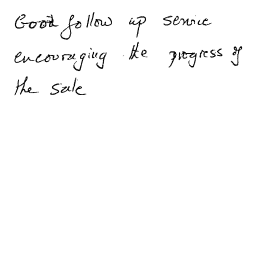 Good follow up service
encouraging the progress of
the sale